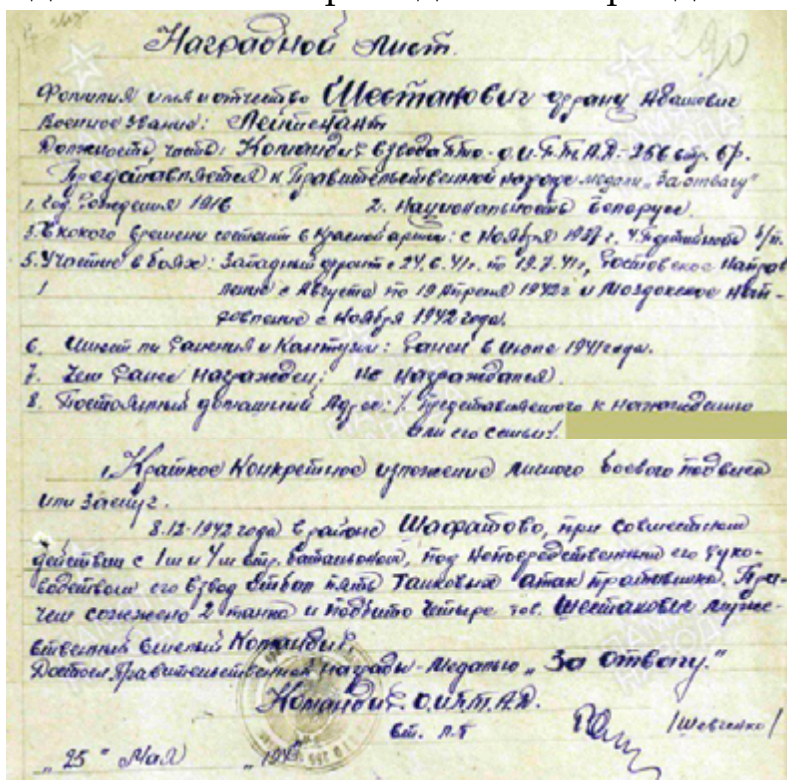 290
Наградной лист.
Фамилия имя и отчество Шестакович Адамович
Военное звание: Лейтенант
Должность, часть: Командир взвода ПТО - О.И.П.Т.А.Д. - 256 стр. бр.
Представляется к Правительственной награде медали „За отвагу"
1. Год рождения 1916 2. Национальность белорусс.
3. С какого времени состоит в Красной армии: с Ноября 1937 г. 4. Партийность б/п.
5. Участие в боях: Западный фронт с 24.6.41 г. по 19.7.41 г., Ростовское Направ
ление с Августа по 19 Апреля 1942 г. и Моздокское Нап-
равление с Ноября 1942 года.
6. Имеет ли ранения и контузии: Ранен в июле 1941 года.
7. Чем ранее награжден: Не награждался.
8. Постоянный домашний Адрес: /. Представляемого к награждению
или его семьи/.
Краткое конкретное изложение личного боевого подвига
или заслуг.
8.12.1942 года в районе Шафатово, при совместном
действии с 1м и 4м стр. батальоном, под непосредственным его руко-
водством его взвод отбил пять танковых атак противника. При-
чем сожжено 2 танка и подбито четыре тов. Шестакович муже-
ственный смелый Командир,
Достоин Правительственной награды - Медалью „За Отвагу."
Командир О.И.П.Т.А.Д.
ст. л-т /Шевченко/
„25" Мая 194
ПАМЯТЬ НАРОДА